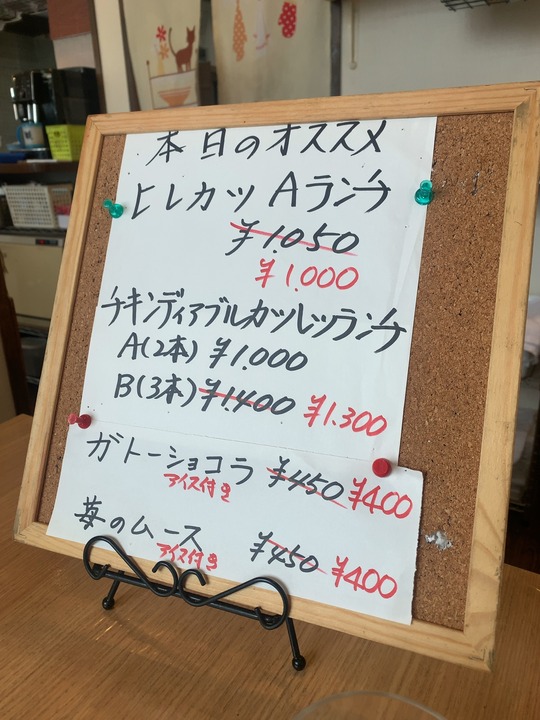 本日のオススメ
ヒレカツ Aランチ
¥1.050
¥1.000
チキンディアブルカツレツランチ
A(2本) ¥1.000
B(3本) ¥1400 ¥1.300
ガトーショコラ ¥450 ¥400
アイス付き
苺のムース ¥450 ¥400
アイス付き